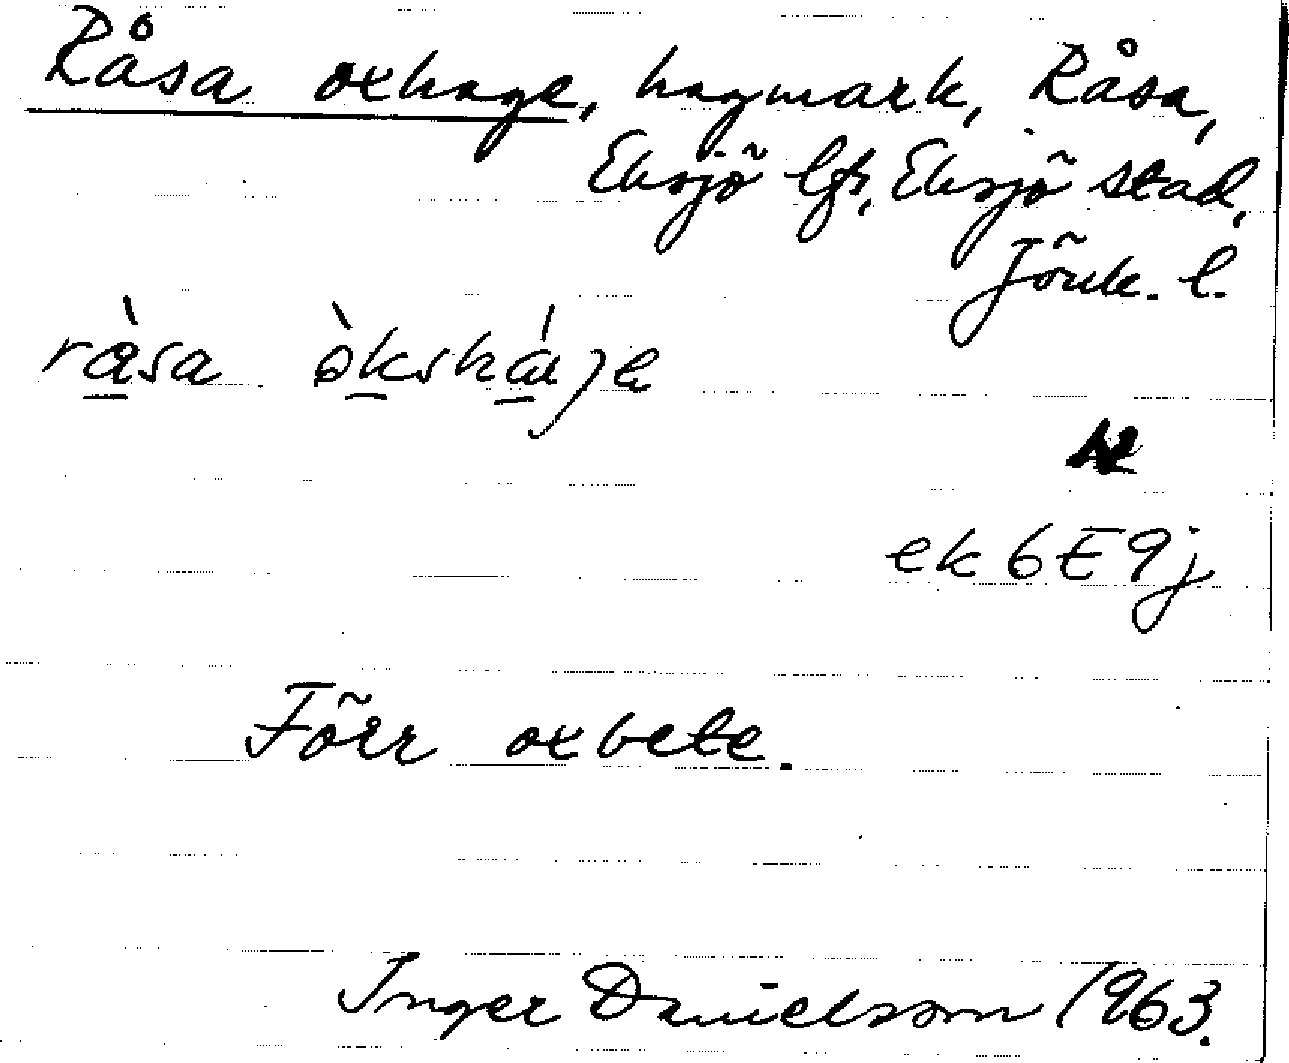 Råsa oxhage, hagmark, Råsa,
Eksjö lfs, Eksjö stad,
Jönk. l.
rå̀sa òksháje
ek 6E9j
Förr oxbete.
Inger Danielsson 1963.